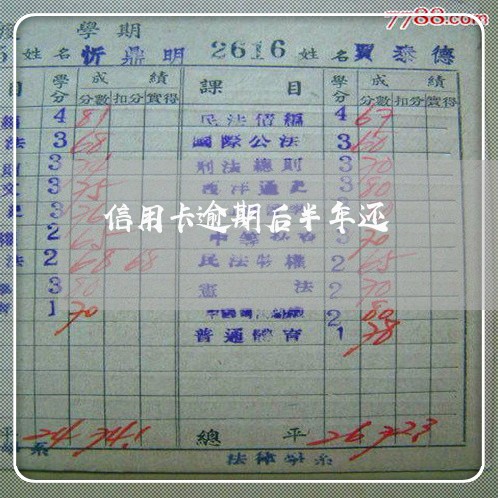 7788.com
學期
5 姓名 忻鼎明 2616 姓名 賈泰德
目 學分 成績 課目 學分 成績
分數 扣分 實得 分數 扣分 實得
4 81 民法債編 4 67
法 3 68 國際公法 3 60
3 刑法總則 3 70
3 75 西洋通史 3 80
3
信用卡逾期后半年还
2 65 3 70
法 2 68 68 民法物權 2 65
3 80 憲法 2 70
1 70 2 80
普通體育 1 78
平 24 74.1 總平 26 72.3
系 法律學系